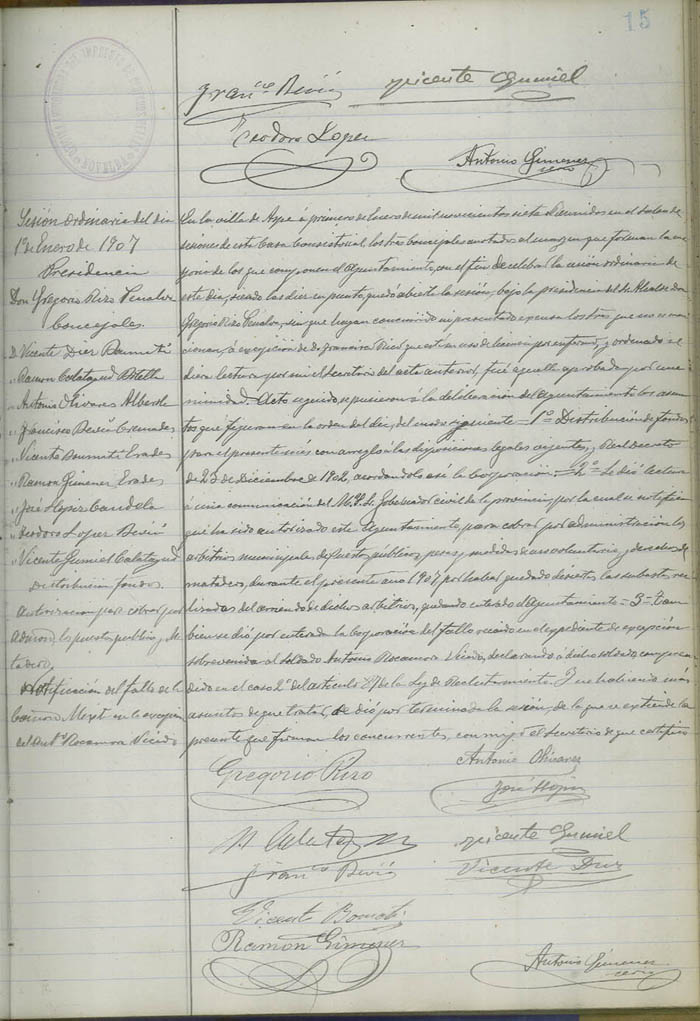 15
Franco Vicente Gumiel
Teodoro Lopez
Antonio Gimenez
Sesión ordinaria del dia
1º Enero de 1907
Presidencia
Don Gregorio Rizo Penalva
Concejales
D. Vicente Diez
" Ramon Calatayud Botella
" Antonio Olivares Alberola
" Francisco
" Vicente Erades
" Ramon Gimenez Erades
" José Lopiz Candela
" Teodoro Lopez
" Vicente Gumiel Calatayud
Distribución fondos
Autorización para cobrar por
admon los puestos publicos y Ma-
tadero
Notificación del fallo de la
Comon Mixta en la excepción
del Antº Rocamora Vicedo
En la villa de Aspe á primero de Enero de mil novecientos siete Reunidos en el salon de
sesiones de esta Casa Consistorial los tres concejales anotados al margen que forman la ma-
yoria de los que componen el Ayuntamiento, con el fin de celebrar la sesión ordinaria de
este dia, siendo las diez en punto, quedó abierta la sesión, bajo la presidencia del Sr. Alcalde Don
Gregorio Rizo Penalva, sin que hayan concurrido ni presentado excusa los tres que no se men-
cionan, á excepción de D. Francisco que está en uso de licencia por enfermo, y ordenado se
diera lectura por mi el Secretario del acta anterior, fué aquella aprobada por una-
nimidad. Acto seguido, se pusieron á la deliberación del Ayuntamiento los asun-
tos que figuran en la orden del dia, del modo siguiente = 1º = Distribución de fondos
para el presente mes con arreglo á las disposiciones legales vigentes, y Real Decreto
de 23 de Diciembre de 1902, acordandolo asi la Corporación. = 2º = Se dió lectura
á una comunicación del M. Y. Sr. Gobernador civil de la provincia por la cual se notifica
que ha sido autorizado este Ayuntamiento para cobrar por administración los
arbitrios municipales de puestos publicos, pesas y medidas de uso voluntario y derechos de
matadero, durante el presente año 1907 por haber quedado desiertas las subastas rea-
lizadas del arriendo de dichos arbitrios, quedando enterado el Ayuntamiento = 3 = Tam-
bien se dió por enterada la Corporación del fallo recaido en el expediente de excepción
sobrevenida al soldado Antonio Rocamora Vicedo, declarando á dicho soldado, compren-
dido en el caso 2º del articulo 87 de la Ley de Reclutamiento. Y no habiendo más
asuntos de que tratar, se dió por terminada la sesión, de la que se extiende la
presente que firman los concurrentes, conmigo el Secretario de que certifico
Gregorio Rizo Antonio Olivares
José Lopiz
Vicente Gumiel
Franco Vicente Diez
Vicente
Ramón Gimenez
Antonio Gimenez